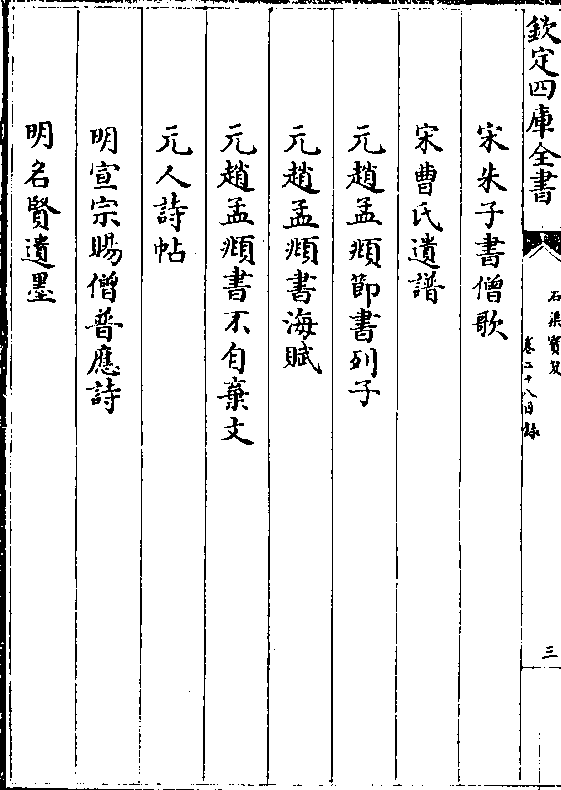 欽定四庫全書
石渠寳笈
卷二十八目錄
三
宋朱子書僧歌
宋曹氏遺譜
元趙孟頫節書列子
元趙孟頫書海賦
元趙孟頫書不自棄文
元人詩帖
明宣宗賜僧普應詩
明名賢遺墨